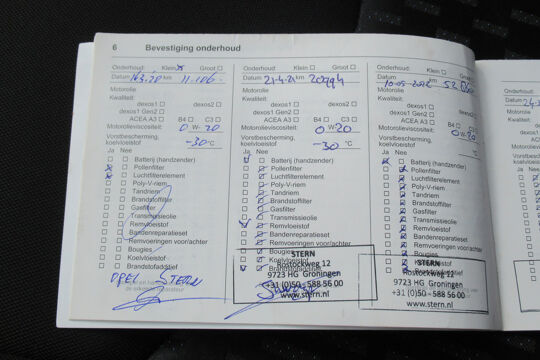 6 Bevestiging onderhoud
Onderhoud: Klein ☒ Groot ☐
Datum 16.3.20 km 11.106
Motorolie
Kwaliteit:
dexos1 ☐ dexos2 ☐
dexos1 Gen2 ☐
ACEA A3 ☐ B4 ☐ C3 ☐
Motorolieviscositeit: 0 W- 20
Vorstbescherming,
koelvloeistof -30 °C
Ja Nee
Batterij (handzender)
Pollenfilter
Luchtfilterelement
Poly-V-riem
Tandriem
Brandstoffilter
Gasfilter
Transmissieolie
Remvloeistof
Bandenreparatieset
Remvoeringen voor/achter
Bougies
Koelvloeistof
Brandstofadditief
OPEL STERN
Onderhoud: Klein ☐ Groot ☐
Datum 21-4-21 km 20994
Motorolie
Kwaliteit:
dexos1 ☐ dexos2 ☐
dexos1 Gen2 ☐
ACEA A3 ☐ B4 ☐ C3 ☐
Motorolieviscositeit: 0 W- 20
Vorstbescherming,
koelvloeistof -30 °C
Ja Nee
Batterij (handzender)
Pollenfilter
Luchtfilterelement
Poly-V-riem
Tandriem
Brandstoffilter
Gasfilter
Transmissieolie
Remvloeistof
Bandenreparatieset
Remvoeringen voor/achter
Bougies
Koelvloeistof
Brandstofadditief
STERN
Rostockweg 12
9723 HG Groningen
+31 (0)50 - 588 56 00
www.stern.nl
Onderhoud: Klein ☐ Groot ☐
Datum 10-05-2022 km
Motorolie
Kwaliteit:
dexos1 ☐ dexos2 ☐
dexos1 Gen2 ☐
ACEA A3 ☐ B4 ☐ C3 ☐
Motorolieviscositeit: 0 W- 20
Vorstbescherming,
koelvloeistof °C
Ja Nee
Batterij (handzender)
Pollenfilter
Luchtfilterelement
Poly-V-riem
Tandriem
Brandstoffilter
Gasfilter
Transmissieolie
Remvloeistof
Bandenreparatieset
Remvoeringen voor/achter
Bougies
Koelvloeistof
STERN
Rostockweg 12
9723 HG Groningen
+31 (0)50 - 588 56 00
www.stern.nl
Onderhoud:
Datum
Motorolie
Kwaliteit: